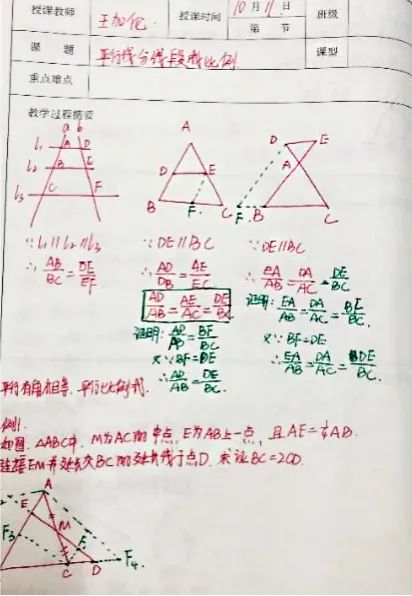 授课教师 王加伦 授课时间 10月11日 班级
第 节
课题 平行线分线段成比例 课型
重点难点
教学过程摘要
a b
l₁ A D
l₂ B E
l₃ C F
A
D E
B F C
D E
A
F B C
∵ l₁∥l₂∥l₃
∴ AB/BC = DE/EF
∵ DE∥BC
∴ AD/DB = AE/EC
AD/AB = AE/AC = DE/BC
证明: AD/AB = BF/BC
又∵ BF=DE
∴ AD/AB = DE/BC
∵ DE∥BC
∴ EA/AB = DA/AC = DE/BC
证明: EA/AB = DA/AC = BF/BC
又∵ BF=DE
∴ EA/AB = DA/AC = DE/BC
平行有角相等、平行比例
例1.
如图, △ABC中, M为AC的中点, E为AB上一点, 且AE=¼AB.
连接EM并延长交BC的延长线于点D. 求证BC=2CD.
A
E
M
F₃ F
C D F₄